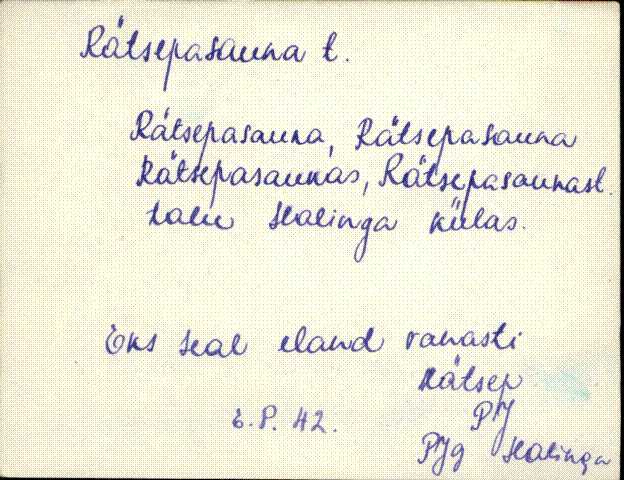 Rätsepasauna t.
Rätsepasauna, Rätsepasauna
Rätsepasaunas, Rätsepasaunast.
talu Halinga külas.
Eks seal eland vanasti
rätsep
E.P. 42.
PJ
PJg Halinga